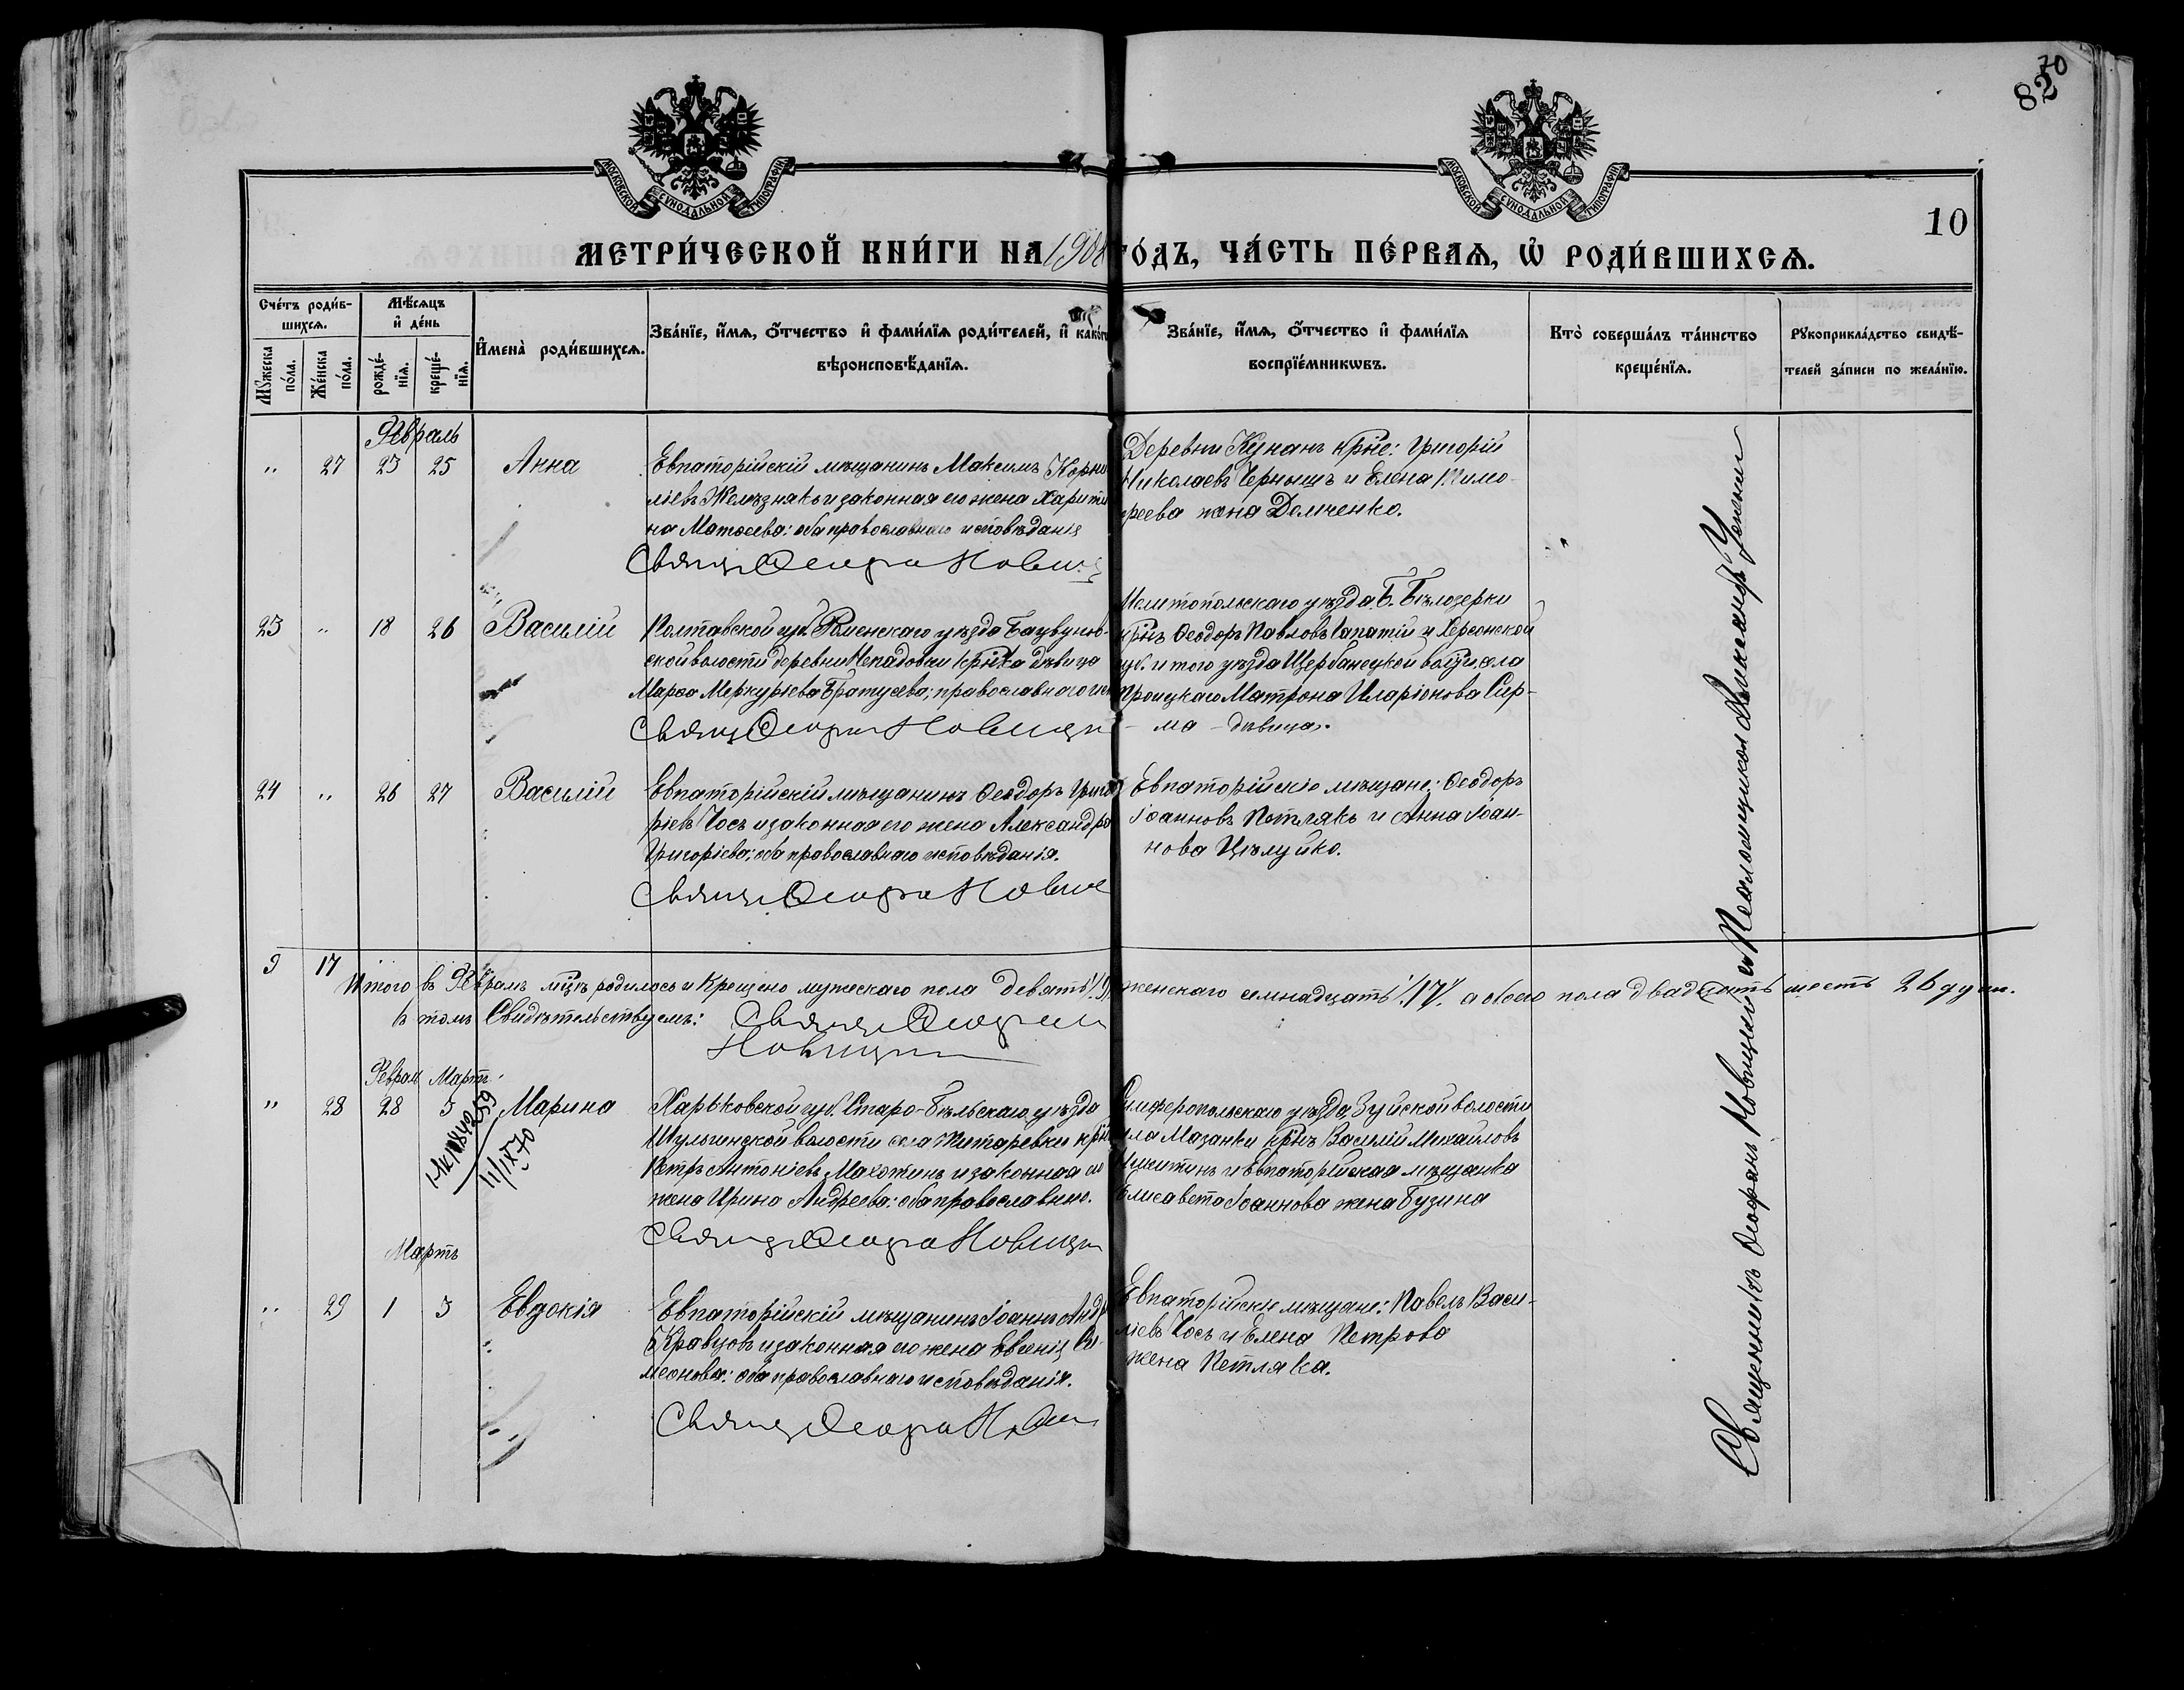 70
82
МОСКОВСКОЙ СѴНОДАЛЬНОЙ ТИПОГРАФІИ
МОСКОВСКОЙ СѴНОДАЛЬНОЙ ТИПОГРАФІИ
10
МЕТРИ́ЧЕСКОЙ КНИ́ГИ НА 1908 ГО́ДЪ, ЧА́СТЬ ПЕ́РВАѦ, Ѡ҆ РОДИ́ВШИХСѦ.
Сче́тъ роди́в-
шихсѧ.
Мѣ́сѧцъ
и҆ де́нь
Мꙋ́жеска
по́ла.
Же́нска
по́ла.
рожде́-
нїѧ.
креще́-
нїѧ.
И҆мена̀ роди́вшихсѧ.
Зва́нїе, и҆́мѧ, ѻ҆́тчество и҆ фами́лїѧ роди́телей, и҆ како́гѡ
вѣроисповѣ́данїѧ.
Зва́нїе, и҆́мѧ, ѻ҆́тчество и҆ фами́лїѧ
воспрїе́мникѡвъ.
Кто̀ соверша́лъ та́инство
креще́нїѧ.
Рꙋкоприкла́дство свидѣ́-
телей за́писи по жела́нїю.
Февраль
" 27 23 25 Анна
Евпаторійскій мѣщанинъ Максимъ Корни
ліевъ Желѣзнякъ и законная его жена Харити
на Матѳеева: оба православнаго исповѣданія
Священ Ѳеофанъ Новиц
Деревни Кунанъ крѣне: Григорій
Николаевъ Чернышъ и Елена Тимо-
феева жена Демченко.
23 " 18 26 Василій
Полтавской губ. Роменскаго уѣзда
ской волости деревни крѣка дѣвица
Марѳа Меркуріева Братусева; православнаго исп
Священ Ѳеофанъ Новицкі
Мелитопольскаго уѣзда Б. Бѣлозерки
крѣнъ Ѳеодоръ Павловъ Лапатій и Херсонской
губ. и того уѣзда Щербанецкой вол. села
Троицкаго Матрона Иларіонова Сир-
ма - дѣвица.
24 " 26 27 Василій
Евпаторійскій мѣщанинъ Ѳеодоръ Григо
ріевъ Чосъ и законная его жена Александра
Григорієва; оба православнаго исповѣданія.
Священ Ѳеофанъ Новиц
Евпаторійскіе мѣщане: Ѳеодоръ
Іоанновъ Петлякъ и Анна Іоан-
нова Цѣлуйко.
9 17
Итого въ Февралѣ мцѣ родилось и крещено мужескаго пола девять /9/ женскаго семнадцать /17/ а обоего пола двадцать шесть 26 душ.
въ томъ Свидѣтельствуемъ: Священ Ѳеофанъ
Новицкі
Феврал Мартъ
" 28 28 3 Марина
11/IX 70
Харьковской губ. Старо-Бѣльскаго уѣзда
Шульгинской волости села Титаревки крѣн
Петръ Антоніевъ Махотинъ и законная его
жена Ирина Андреева: оба православные.
Священ Ѳеофанъ Новицкі
Симферопольскаго уѣзда, Зуйской волости
села Мазанки крѣнъ Василій Михайловъ
Никитинъ и Евпаторійская мѣщанка
Елисавета Іоаннова жена Бузина
Мартъ
" 29 1 3 Евдокія
Евпаторійскій мѣщанинъ Іоаннъ Андр
Кравцовъ и законная его жена Евгенія Си-
меонова: оба православнаго исповѣданія.
Священ Ѳеофанъ Нови
Евпаторійскіе мѣщане: Павелъ Васи-
ліевъ Чосъ и Елена Петрова
жена Петляка.
Священникъ Ѳеофанъ Новицкій съ Псаломщикомъ Александр